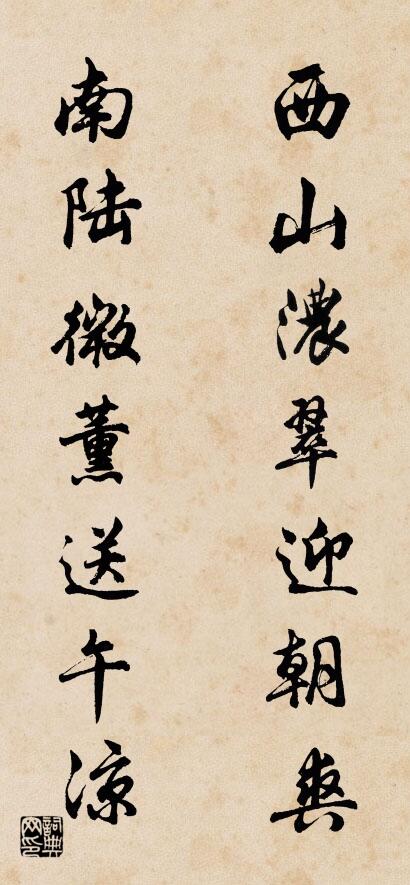 西山濃翠迎朝爽
南陆微薰送午凉
詞典网印